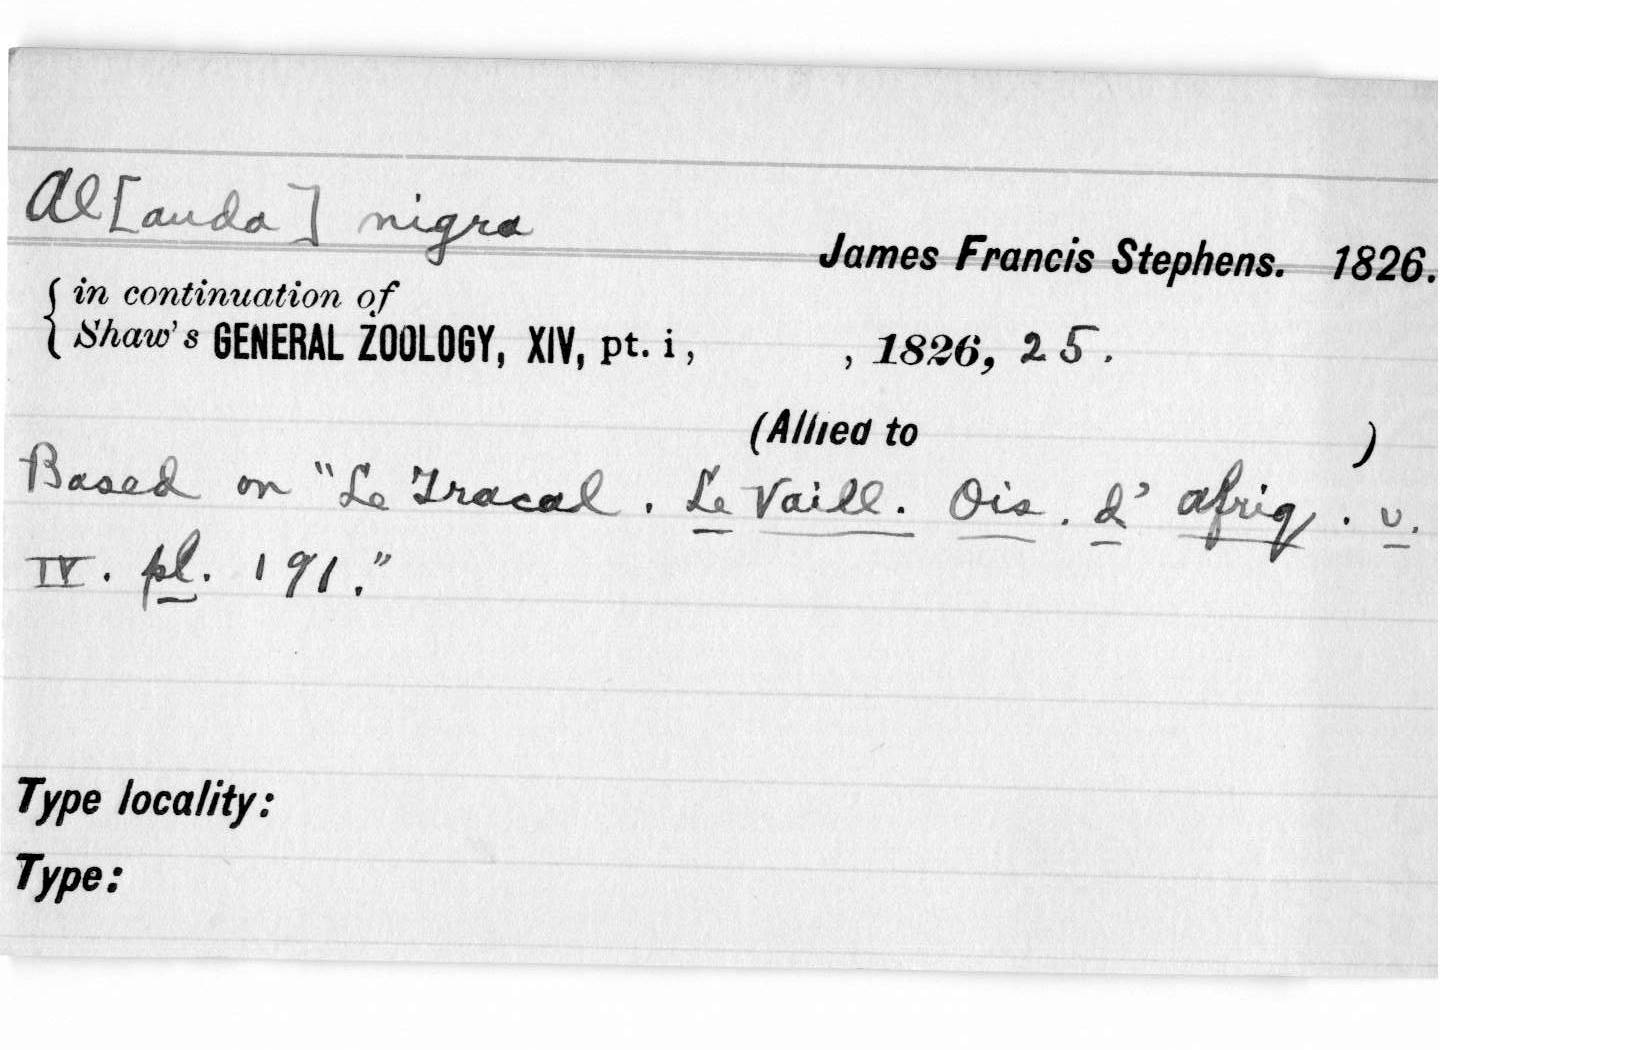 Al[auda] nigra
James Francis Stephens. 1826.
in continuation of
Shaw's GENERAL ZOOLOGY, XIV, pt. i, , 1826, 25.
(Allied to )
Based on "Le Tracal. Le Vaill. Ois. d' Afriq. v.
IV. pl. 191."
Type locality:
Type: